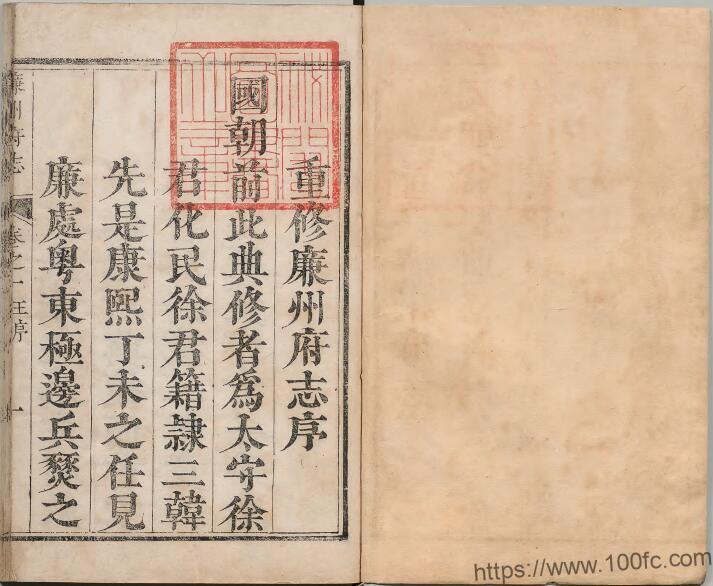 重修廉州府志序
國朝前此典修者爲太守徐
君化民徐君籍隸三韓
先是康熙丁未之任見
廉處粤東極邊兵燹之
廉州府志
卷之一 王序
一
https://www.100fc.com